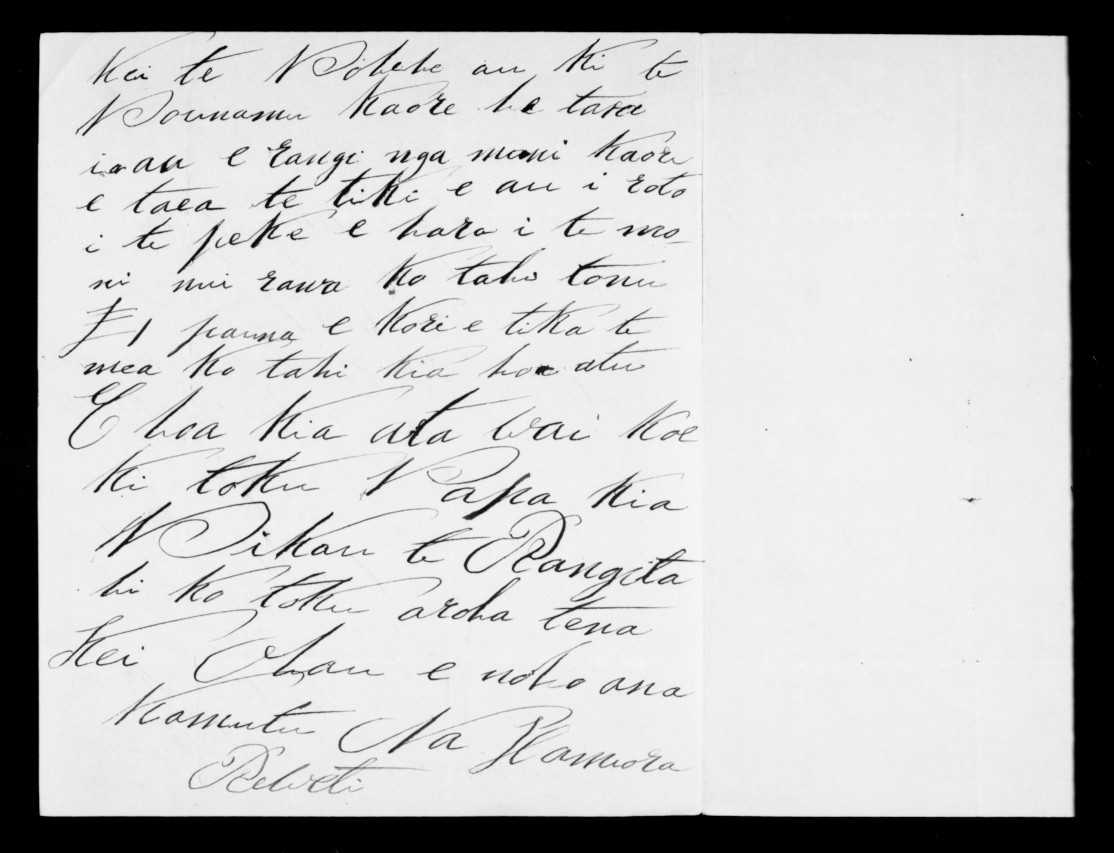 Kei te Pohehe au ki te
Pounamu Kaore he taea
i au e rangi nga moni Kaore
e taea te tiki e au i roto
i te peke e hara i te mo-
ni nui rawa Ko tahi tonu
£1 pauna e Kore e tika te
mea Ko tahi Kia hoe atu
E hoa Kia ata wai Koe
Ki toku Papa Kia
Pikau te Rangita
hi Ko toku aroha tena
Kei Ohau e noho ana
Kamutu Na Hamiora